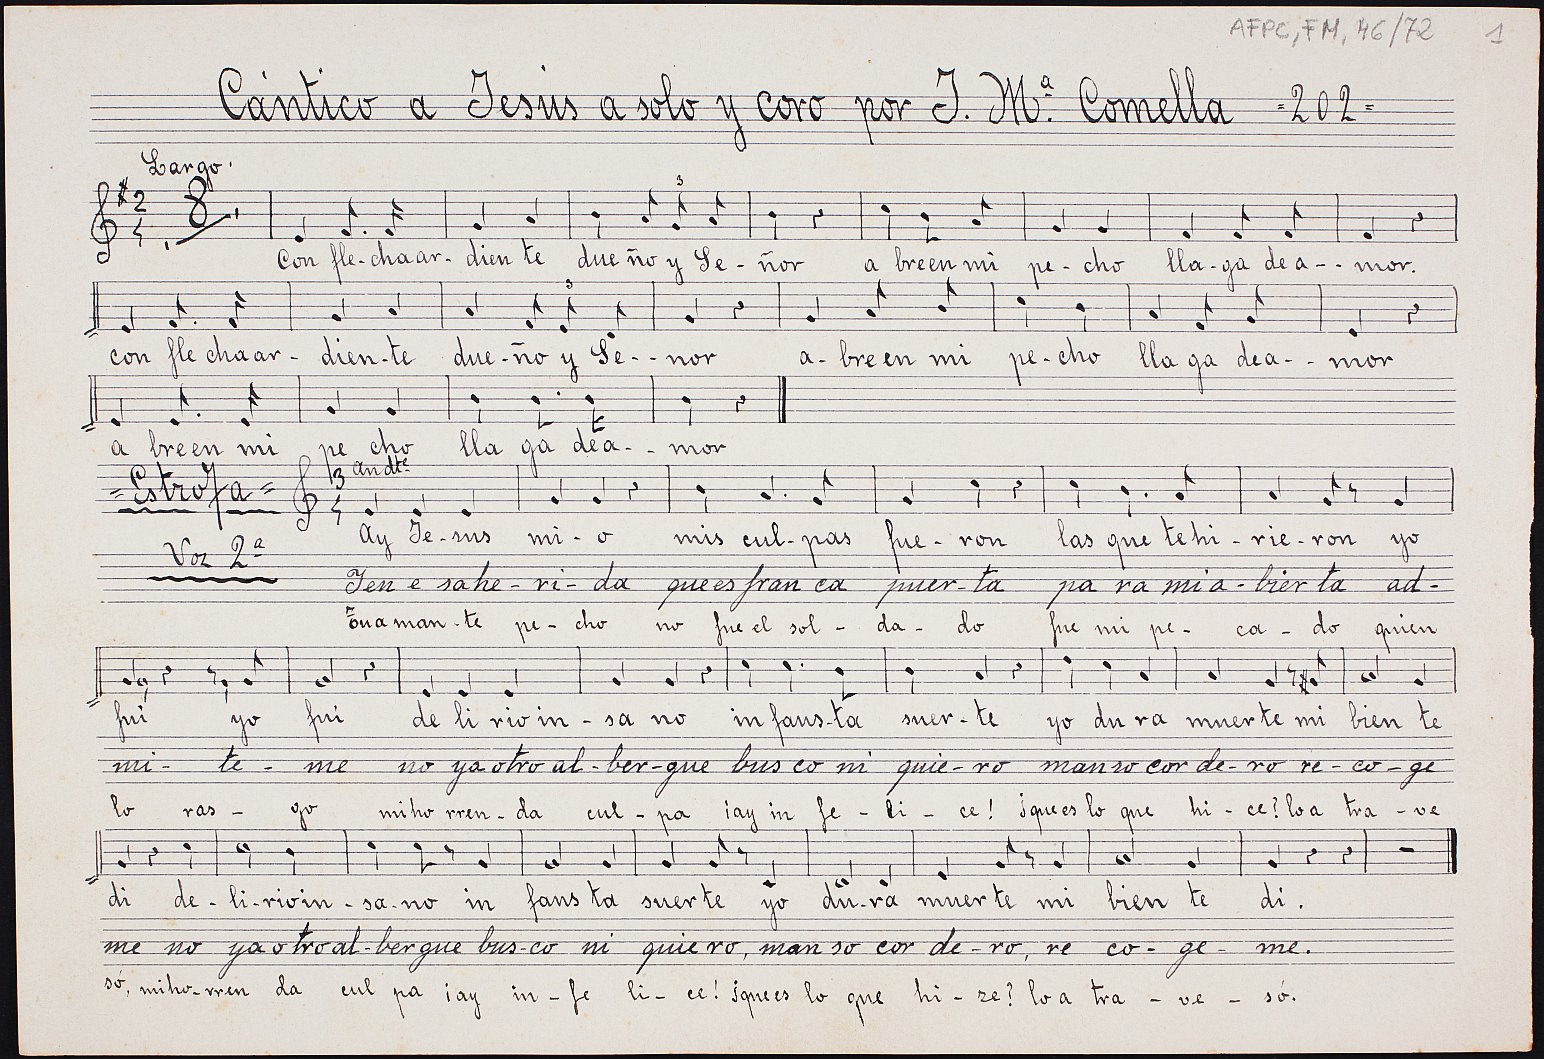 AFPC, FM, 46/72 1
Cántico a Jesús a solo y coro por J. Mª. Comella =202=
Largo.
2 4 8 3
Con fle-cha ar-dien te due ño y Se-ñor a breen mi pe-cho lla-ga de a-- mor.
3
con fle cha ar-dien-te due-ño y Se--nor a-breen mi pe-cho lla ga dea--mor
a breen mi pe cho lla ga dea--mor
=Estrofa= 3 4 andte
Ay Je-sus mi-o mis cul-pas fue-ron las que te hi-rie-ron yo
Voz 2ª
Ten e sa he-ri-da que es fran ca puer-ta pa ra mi a-bier ta ad-
Tu a man-te pe-cho no fue el sol-da-do fue mi pe-ca-do quien
fui yo fui de li rio in-sa no in faus-ta suer-te yo du ra muer te mi bien te
mi-te-me no ya otro al-ber-gue bus co ni quie-ro manso cor de-ro re-co-ge
lo ras-go mi ho rren-da cul-pa ¡ay in fe-li-ce! ¿que es lo que hi-ce? lo a tra-ve
di de-li-rio in-sa-no in faus ta suer te yo du-ra muer te mi bien te di.
me no ya o tro al-ber gue bus-co ni quie ro, man so cor de-ro, re co-ge-me.
só, mi ho-rren da cul pa ¡ay in-fe li-ce! ¿que es lo que hi-ze? lo a tra-ve-só.